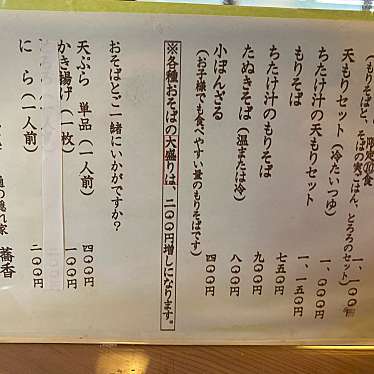 限定20食 一、一〇〇円
(もりそばと、そばの実ごはん、とろろのセット)
天もりセット(冷たいつゆ) 一、〇〇〇円
ちたけ汁の天もりセット 一、一五〇円
もりそば 七五〇円
ちたけ汁のもりそば 九〇〇円
たぬきそば(温または冷) 八〇〇円
小ぼんざる 四〇〇円
(お子様でも食べやすい量のもりそばです)
※各種おそばの大盛りは、二〇〇円増しになります。
おそばとご一緒にいかがですか?
天ぷら 単品(一人前) 四〇〇円
かき揚げ(一枚) 一〇〇円
(一人前)
にら(一人前) 二〇〇円
通の隠れ家 蕎香